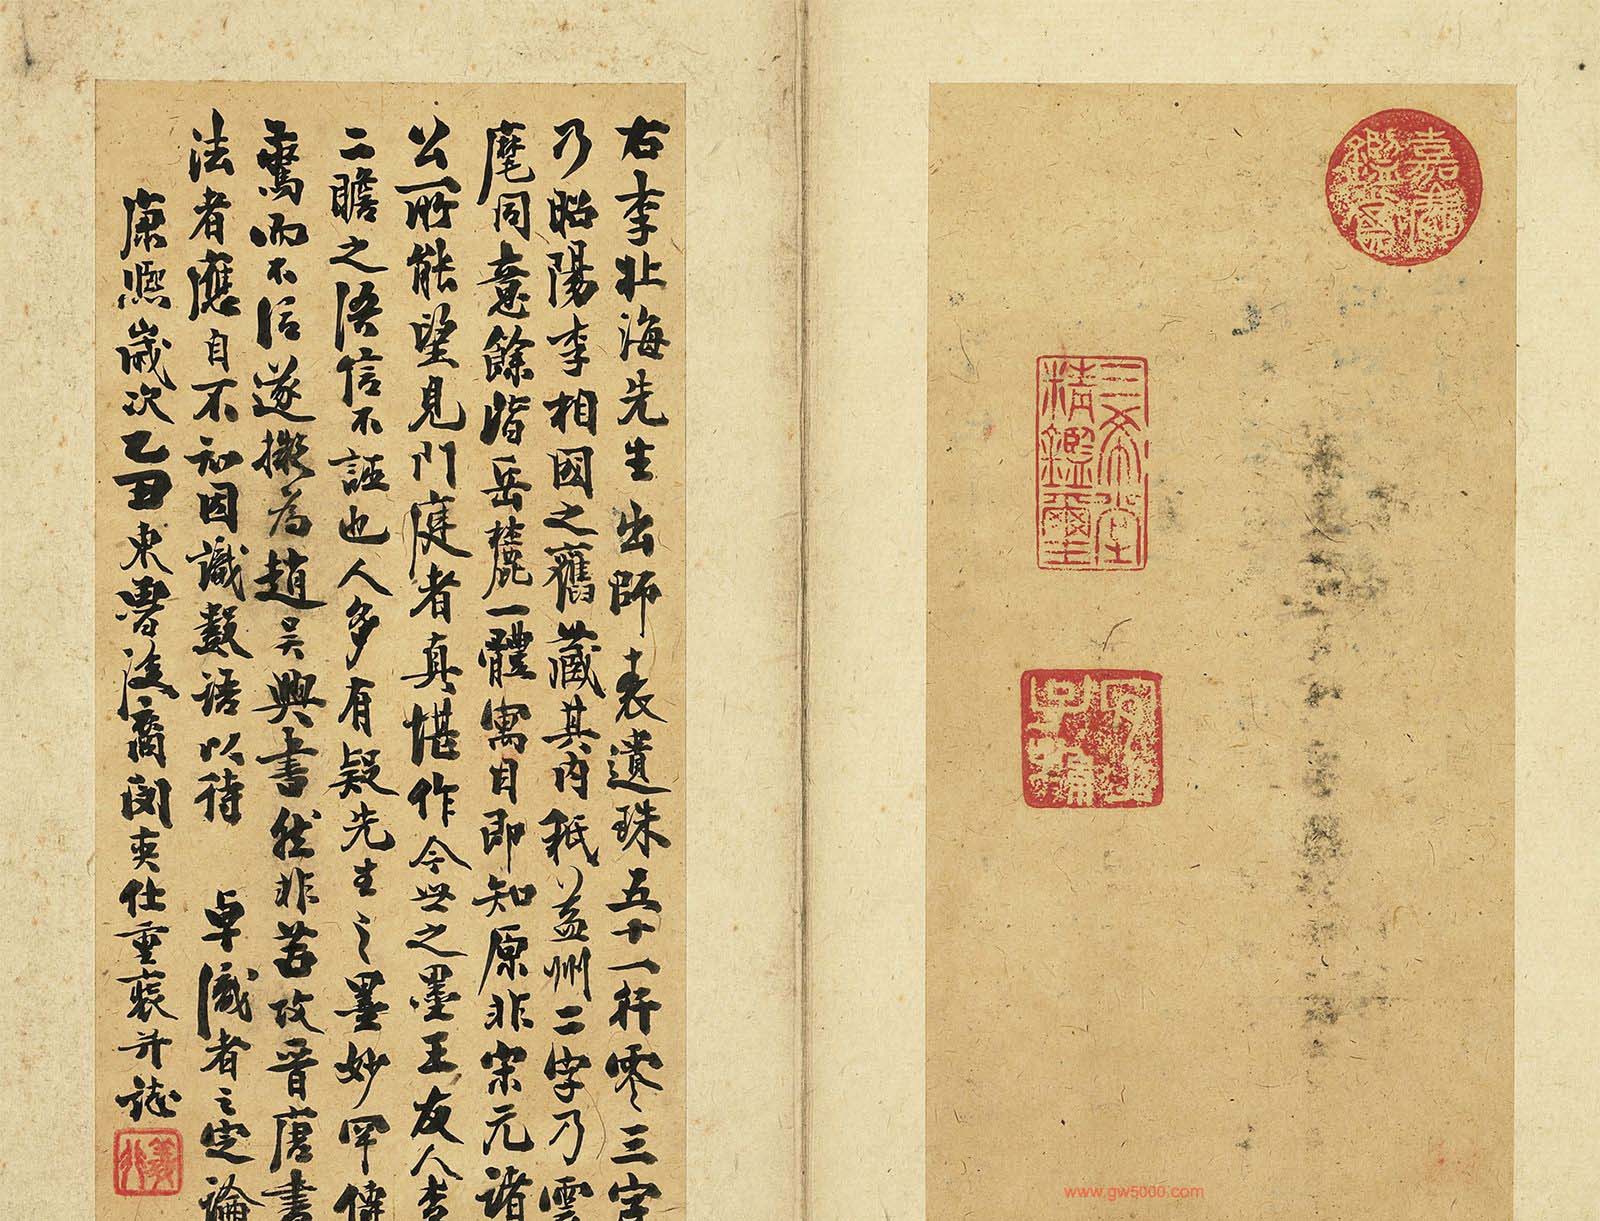 嘉慶鑑賞
三希堂精鑑璽
宜子孫
右李北海先生出師表遺珠五十一行零三字
乃昭陽李相國之舊藏其內秖益州二字乃雲
麾同意餘皆岳麓一體寓目即知原非宋元諸
公所能望見門庭者真堪作今世之墨王友人李
二瞻之語信不誣也人多有疑先生之墨妙罕傳
驚而不信遂擬為趙吳興書然非若攷晉唐書
法者應自不知因識數語以待 卓識者之定論
康熙歲次乙丑東魯後裔閔奕仕重裝并誌
義行
www.gw5000.com